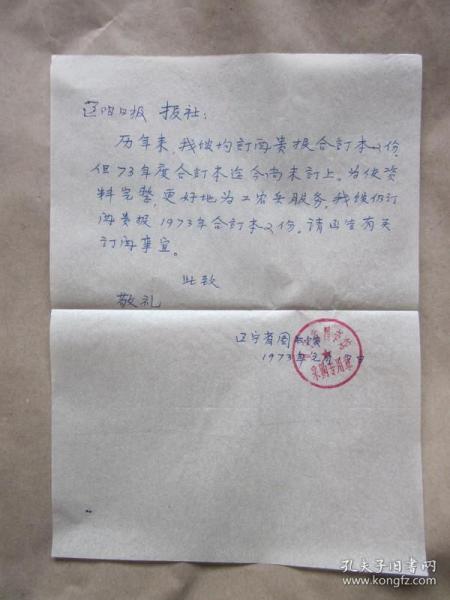 日报 报社：
历年来，我馆均订阅贵报合订本2份，
但73年度合订本迄今尚未订上。为使资
料完整，更好地为工农兵服务，我馆仍订
阅贵报1973年合订本2份。请函告有关
订阅事宜。
此致
敬礼
辽宁省图书馆
1973年
采购专用章
孔夫子旧书网
www.kongfz.com